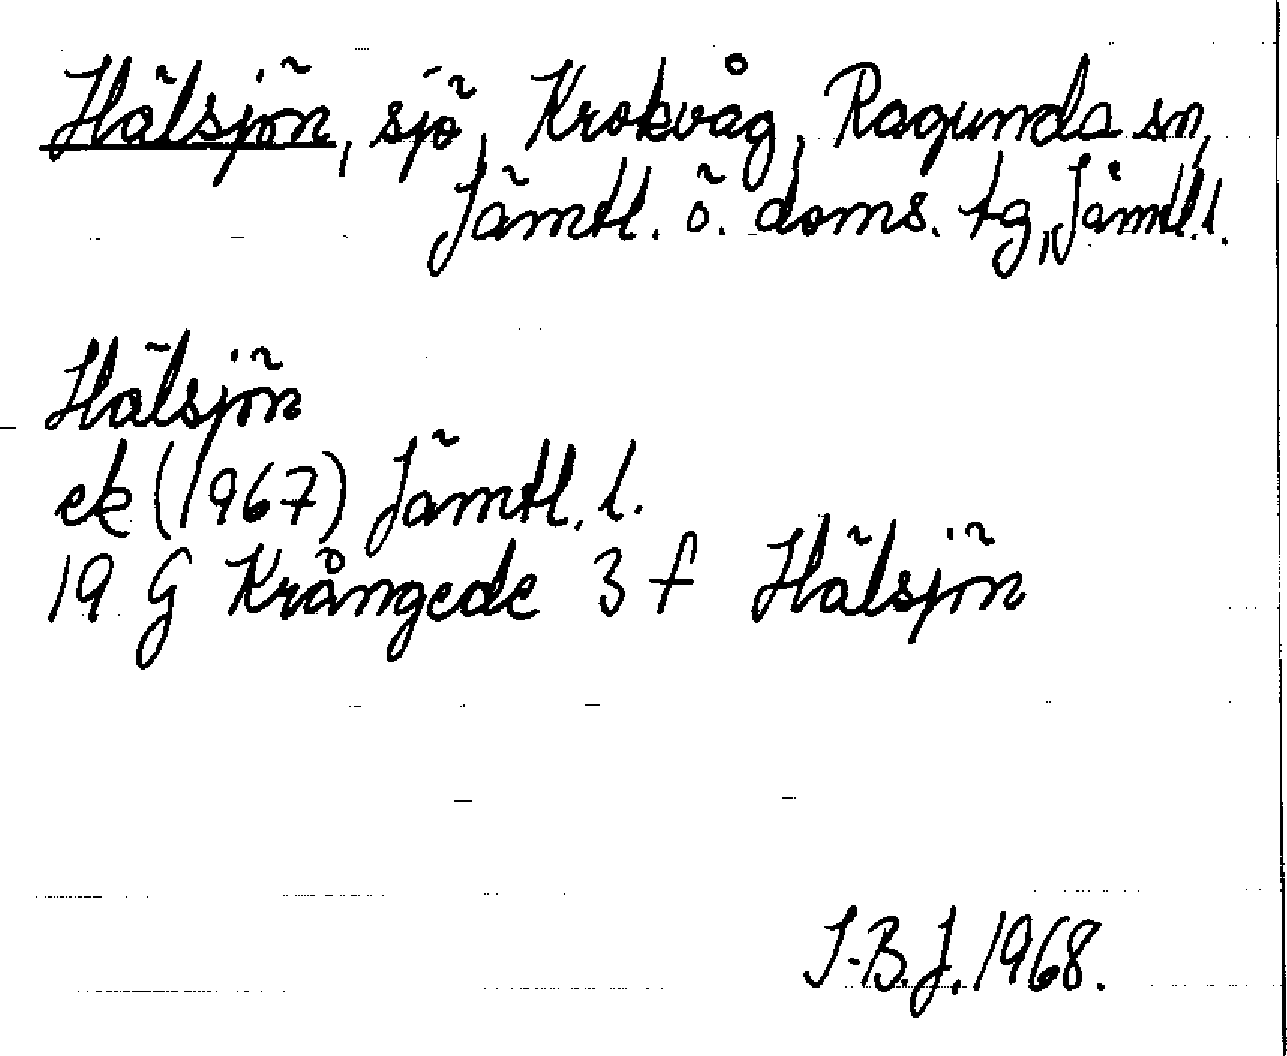 Hälsjön, sjö, Krokvåg, Ragunda sn,
Jämtl. ö. doms. tg, Jämtl. l.
Hälsjön
ek (1967) Jämtl. l.
19 G Krångede 3 f Hälsjön
I-B.J. 1968.